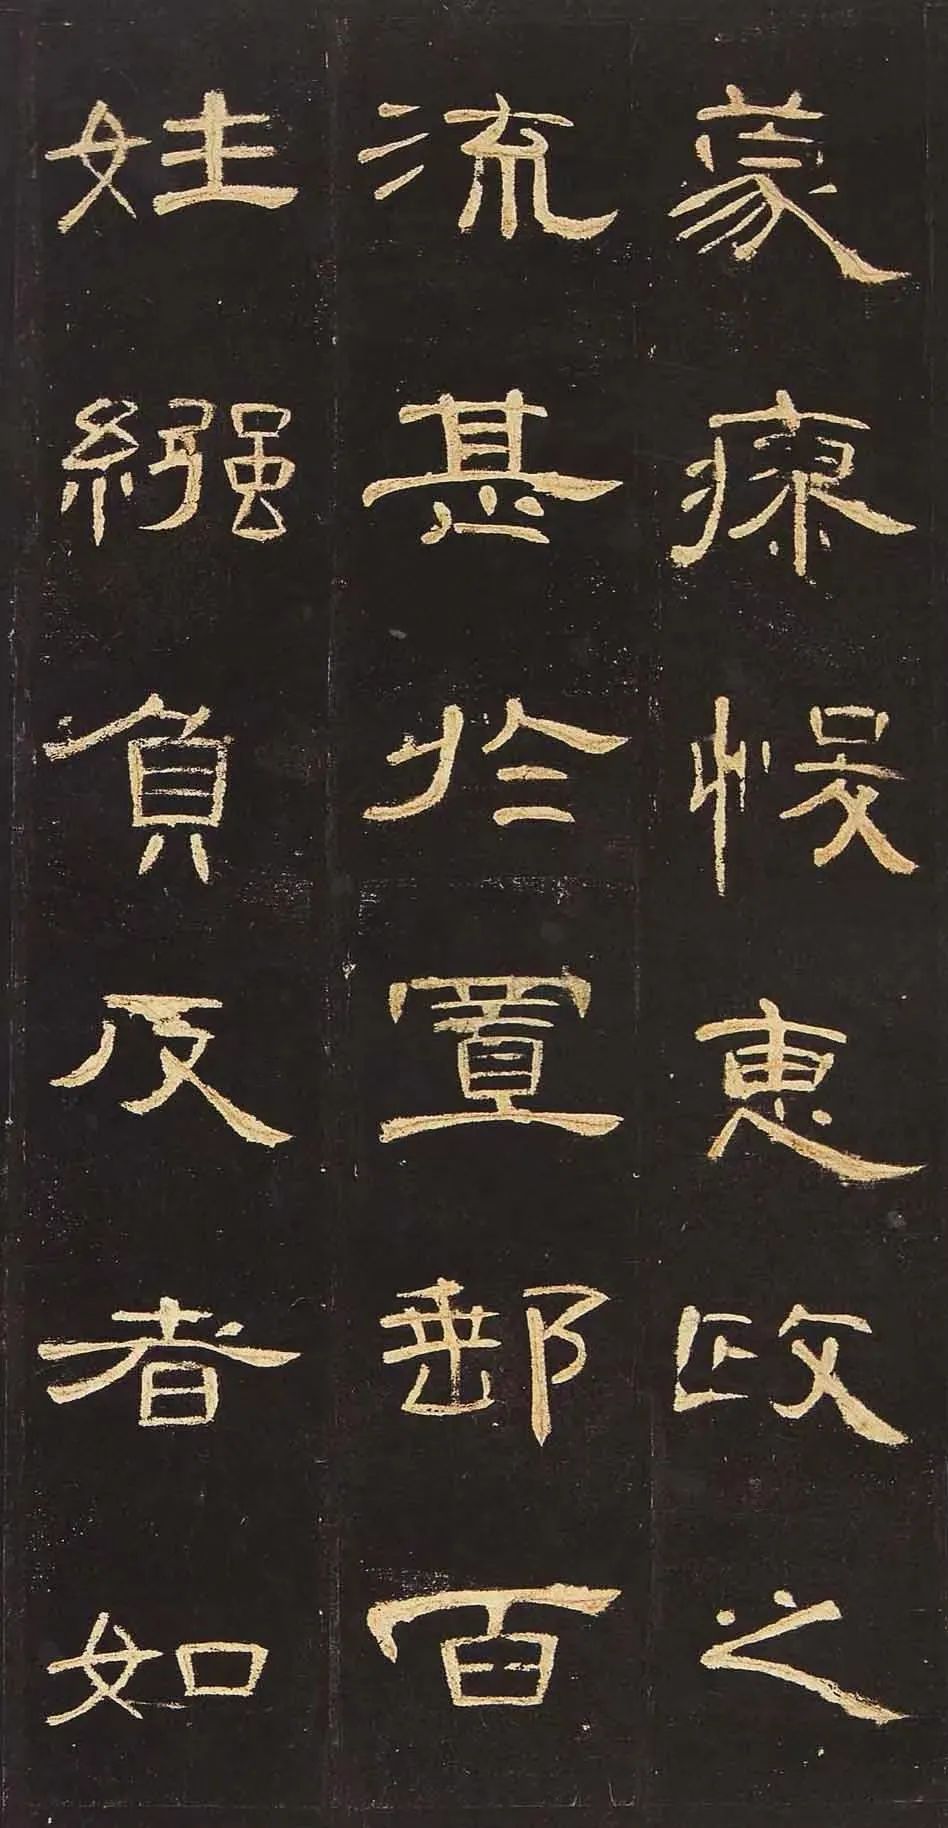 蒙瘳悮惠政之
流甚於置郵百
姓繈負反者如